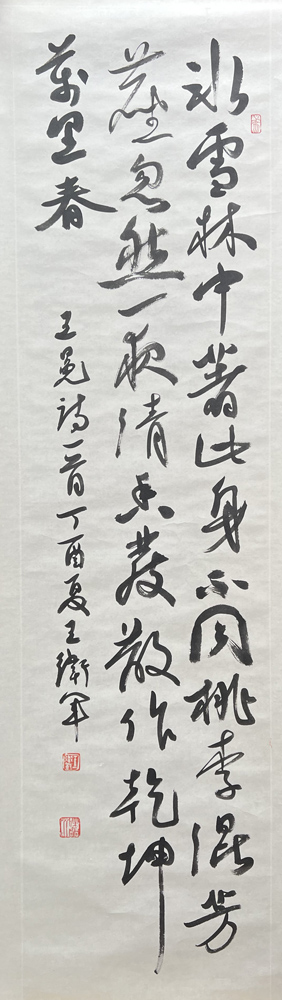 冰雪林中著此身不同桃李混芳
塵忽然一夜清香發散作乾坤
萬里春
王冕詩一首丁酉夏王衛軍